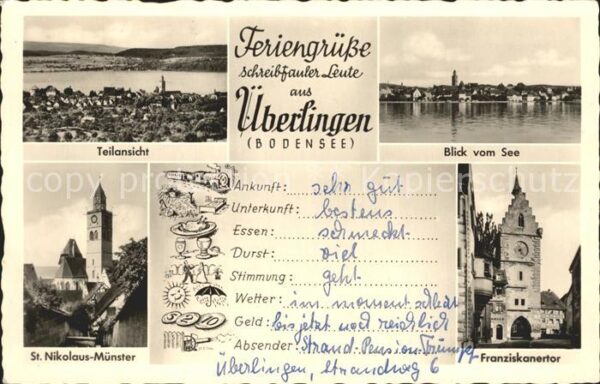 Feriengrüße
schreibfauler Leute
aus
Überlingen
(BODENSEE)
Teilansicht
Blick vom See
Ankunft: sehr gut
Unterkunft: bestens
Essen: schmeckt
Durst: viel
Stimmung: geht
Wetter: im moment schlecht
Geld: bis jetzt noch reichlich
Absender: Strand-Pension Trumpf
Überlingen, Strandweg 6
St. Nikolaus-Münster
Franziskanertor